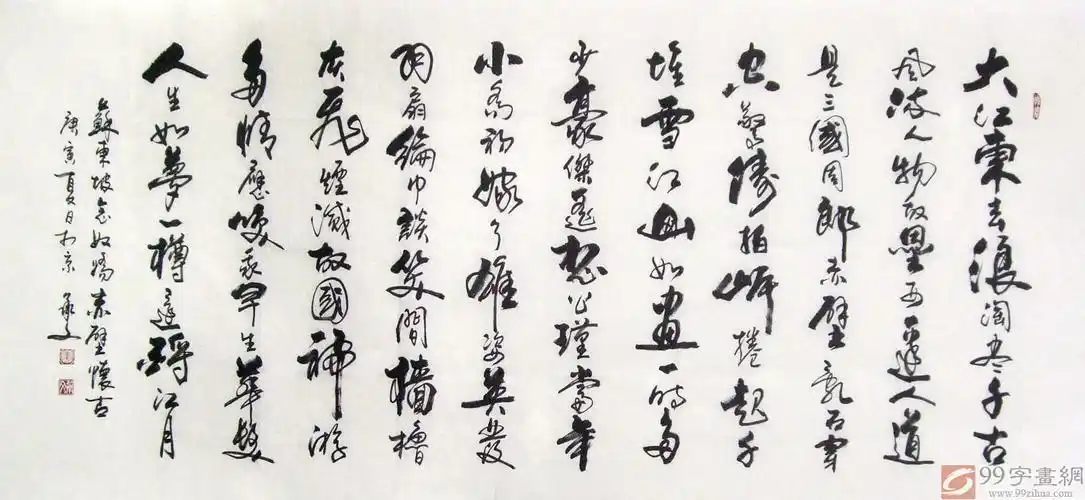 大江東去浪淘盡千古
風流人物故壘西邊人道
是三國周郎赤壁亂石穿
空驚濤拍岸捲起千
堆雪江山如畫一時多
少豪傑遙想公瑾當年
小喬初嫁了雄姿英發
羽扇綸巾談笑間檣櫓
灰飛煙滅故國神游
多情應笑我早生華髮
人生如夢一樽還酹江月
蘇東坡念奴嬌赤壁懷古
庚寅夏日於京
99字畫網
www.99zihua.com